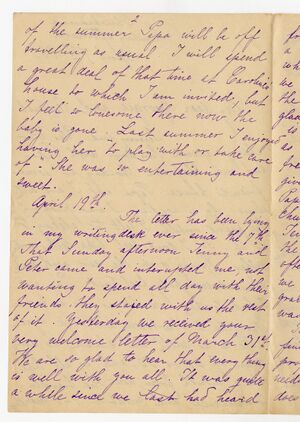 2
of the summer Papa will be off
travelling as usual I will spend
a great deal of that time at Caroline
house to which I am invited, but
I feel so lonesome there now the
baby is gone. Last summer I enjoyed
having her "to play with or take care
of". She was so entertaining and
sweet.
April 19th.
The letter has been lying
in my writing desk ever since the 7th
That Sunday afternoon Jenny and
Peter came and interupted me, not
wanting to spend all day with their
friends. they stayed with us the rest
of it. Yesterday we received your
very welcome letter of March 31st.
We are so glad to hear that every thing
is well with you all. It was quite
a while since we last had heard